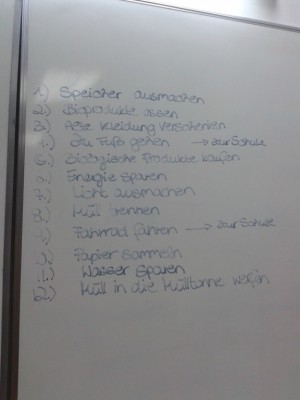 1.) Speicher ausmachen
2.) Bioprodukte essen
3.) Alte Kleidung verschenken
Zu Fuß gehen → zur Schule
Biologische Produkte kaufen
Energie sparen
Licht ausmachen
Müll trennen
Fahrrad fahren → zur Schule
Papier sammeln
Wasser sparen
12.) Müll in die Mülltonne werfen